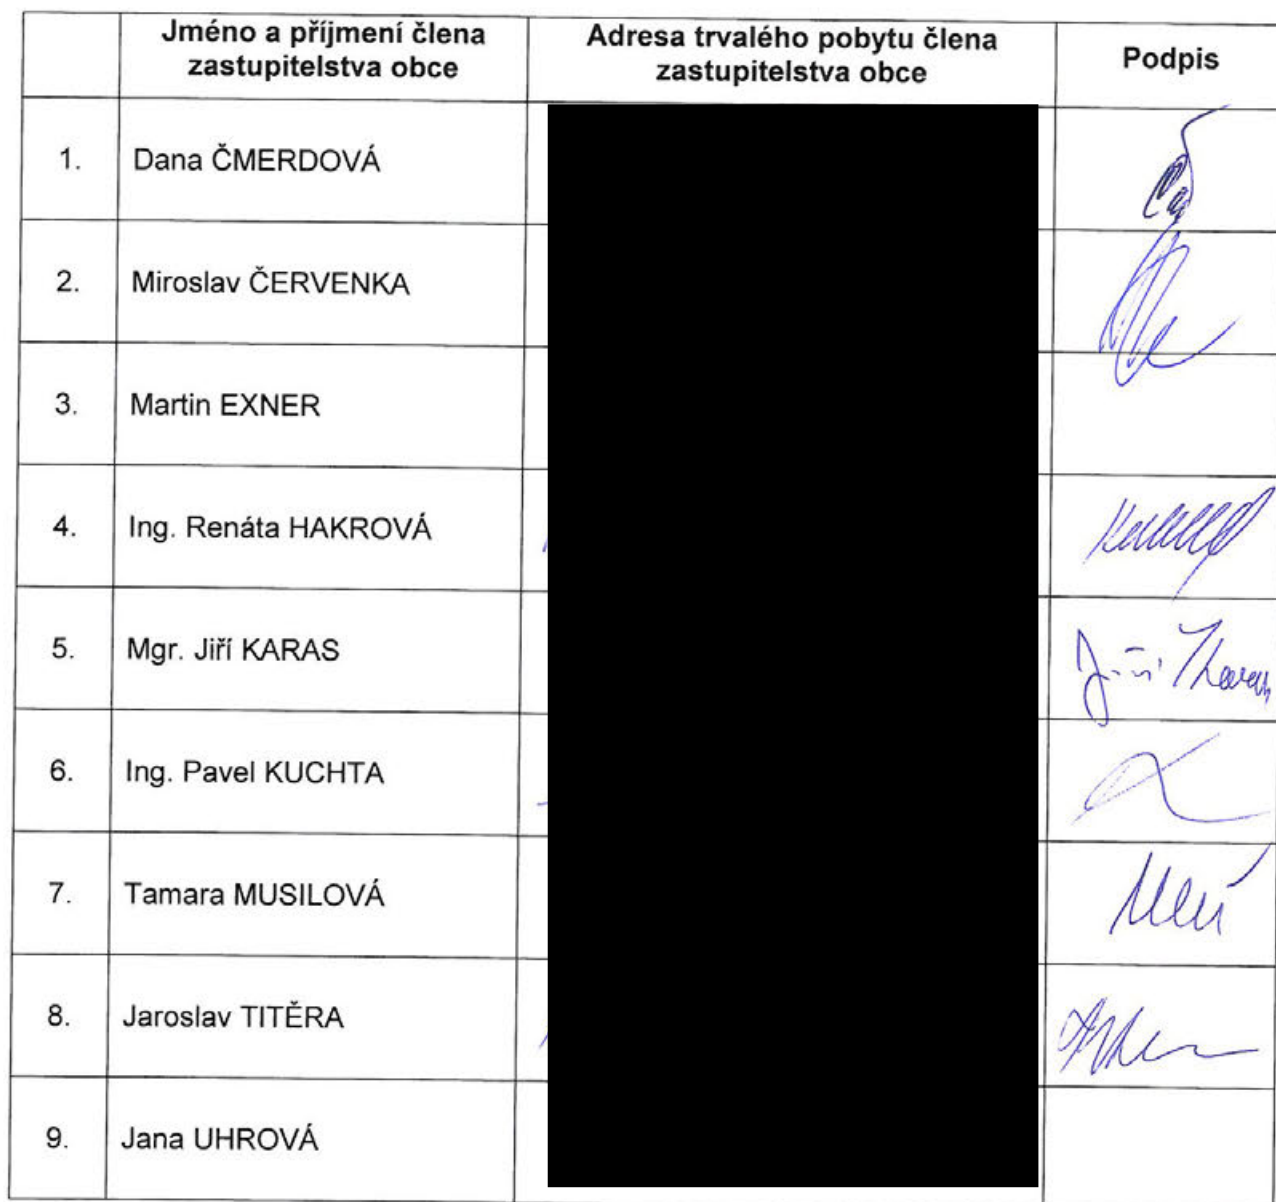 Jméno a příjmení člena
zastupitelstva obce
Adresa trvalého pobytu člena
zastupitelstva obce
Podpis
1. Dana ČMERDOVÁ
2. Miroslav ČERVENKA
3. Martin EXNER
4. Ing. Renáta HAKROVÁ
5. Mgr. Jiří KARAS
6. Ing. Pavel KUCHTA
7. Tamara MUSILOVÁ
8. Jaroslav TITĚRA
9. Jana UHROVÁ